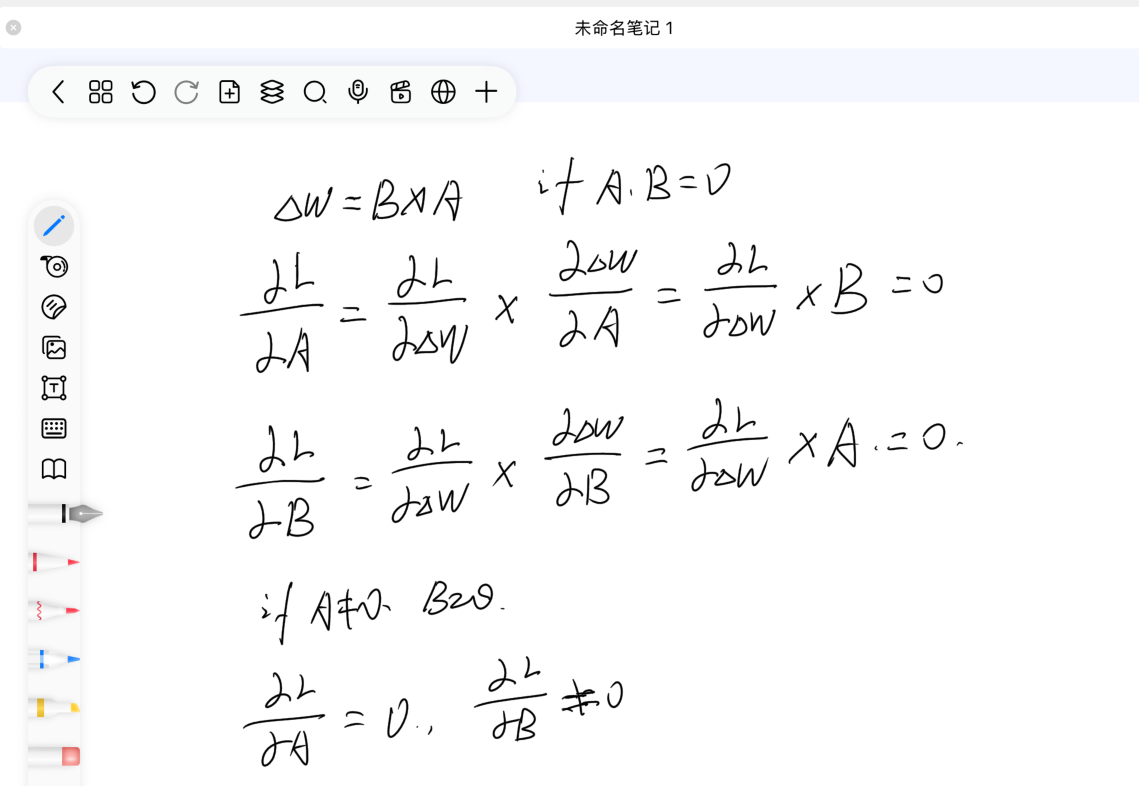 未命名笔记 1
ΔW = B × A    if A.B = 0
∂L/∂A = ∂L/∂ΔW × ∂ΔW/∂A = ∂L/∂ΔW × B = 0
∂L/∂B = ∂L/∂ΔW × ∂ΔW/∂B = ∂L/∂ΔW × A. = 0.
if A≠0、 B=0.
∂L/∂A = 0., ∂L/∂B ≠ 0